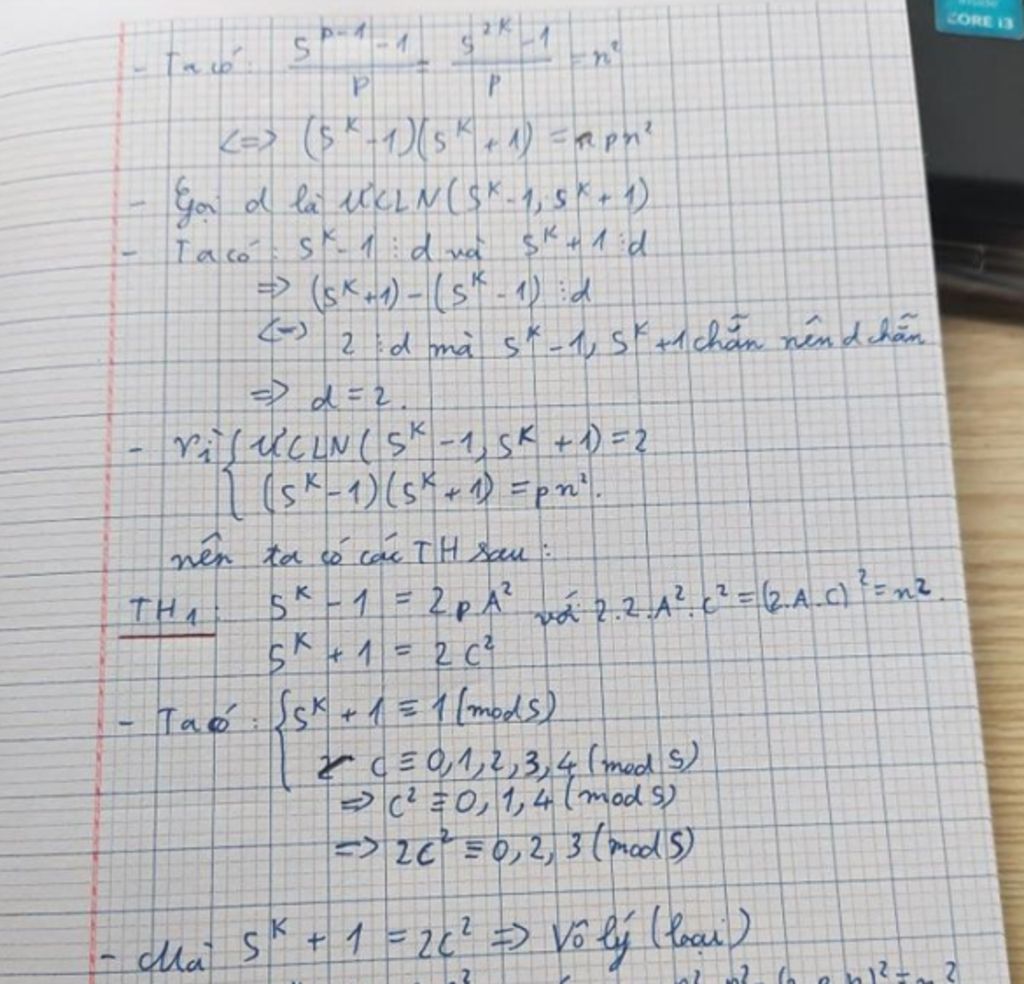 CORE i3
- Ta có: \frac{5^{p-1}-1}{p} = \frac{5^{2K}-1}{p} = n²
<=> (5^K - 1)(5^K + 1) = pn²
- Gọi d là ƯCLN(5^K - 1, 5^K + 1)
- Ta có: 5^K - 1 ⋮ d và 5^K + 1 ⋮ d
=> (5^K + 1) - (5^K - 1) ⋮ d
<=> 2 ⋮ d mà 5^K - 1, 5^K + 1 chẵn nên d chẵn
=> d = 2.
- Vì { ƯCLN(5^K - 1, 5^K + 1) = 2
(5^K - 1)(5^K + 1) = pn².
nên ta có các TH sau:
TH1 5^K - 1 = 2pA² với 2.2.A².C² = (2.A.C)² = n².
5^K + 1 = 2C²
- Ta có: { 5^K + 1 ≡ 1 (mod 5)
C ≡ 0, 1, 2, 3, 4 (mod 5)
=> C² ≡ 0, 1, 4 (mod 5)
=> 2C² ≡ 0, 2, 3 (mod 5)
- Mà 5^K + 1 = 2C² => Vô lý (loại)